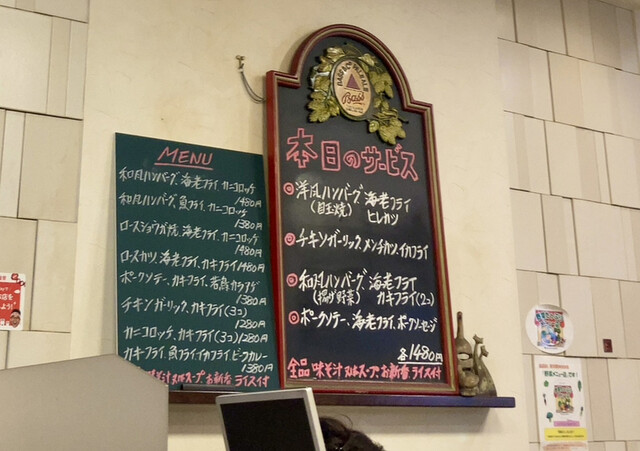 MENU
和風ハンバーグ、海老フライ、カニコロッケ
1480円
和風ハンバーグ、魚フライ、カニコロッケ
1380円
ロースショウガ焼、海老フライ、カニコロッケ
1480円
ロースカツ、海老フライ、カキフライ1480円
ポークソテー、カキフライ、若鳥カラアゲ
1380円
チキンガーリック、カキフライ(3コ)
1280円
カニコロッケ、カキフライ(3コ)1280円
カキフライ、魚フライ、イカフライ、ビーフカレー
1380円
全品 味そ汁又はスープ お新香 ライス付
BASS & CO'S PALE ALE
Bass
本日のサービス
洋風ハンバーグ 海老フライ
(目玉焼) ヒレカツ
チキンガーリック、メンチカツ、イカフライ
和風ハンバーグ 海老フライ
(揚げ野菜) カキフライ(2コ)
ポークソテー、海老フライ、ポークソーセージ
各1480円
全品 味そ汁又はスープ お新香 ライス付